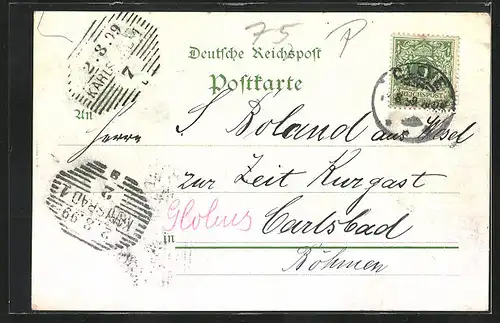 75
Deutsche Reichspost
Postkarte
An
Herrn S Boland aus Wesel
zur Zeit Kurgast
Globus
in Carlsbad
Böhmen
2.8.99
7
2.8.99
2